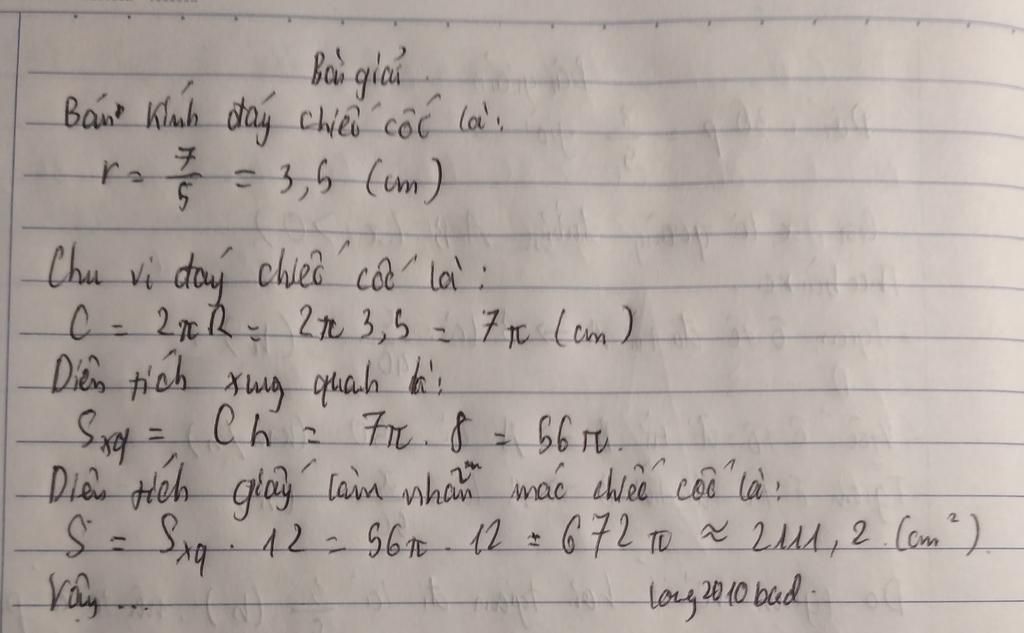 Bài giải
Bán kính đáy chiếc cốc là:
r = 7/5 = 3,5 (cm)
Chu vi đáy chiếc cốc là:
C = 2πR = 2π 3,5 = 7π (cm)
Diện tích xung quanh là:
Sxq = Ch = 7π . 8 = 56π.
Diện tích giấy làm nhãn mác chiếc cốc là:
S = Sxq . 12 = 56π . 12 = 672π ≈ 2111,2 (cm²)
Vậy ... long2010bad.